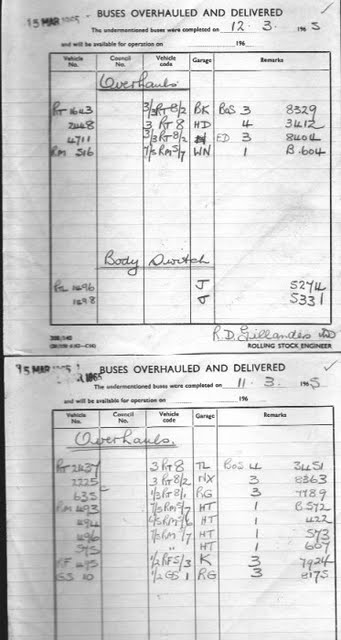 15 MAR 1965
BUSES OVERHAULED AND DELIVERED
The undermentioned buses were completed on 12. 3. 1965
and will be available for operation on 196
Vehicle No. Council No. Vehicle code Garage Remarks
Overhauls
RT 1643 3/3RT8/2 BK BoS 3 8329
2448 3 RT 8 HD 4 3412
4711 3/3RT8/2 ED 3 8404
RM 516 7/5RM5/7 WN 1 B.604
Body Switch
RT 1496 J 5274
1498 J 5331
R.D. Gillandes
ROLLING STOCK ENGINEER
15 MAR 1965
BUSES OVERHAULED AND DELIVERED
The undermentioned buses were completed on 11. 3. 1965
and will be available for operation on 196
Vehicle No. Council No. Vehicle code Garage Remarks
Overhauls.
RT 2437 3RT8 TL BoS 4 3451
2225 3RT8/2 NX 3 8363
635 1/3RT8/1 RG 3 7789
RM 493 7/5RM5/7 HT 1 B.572
494 HT 1 422
496 7/5RM5/7 HT 1 573
575 " HT 1 607
RF 495 1/2RF5/3 K 3 7924
GS 10 1/2GS 1 RG 3 8175